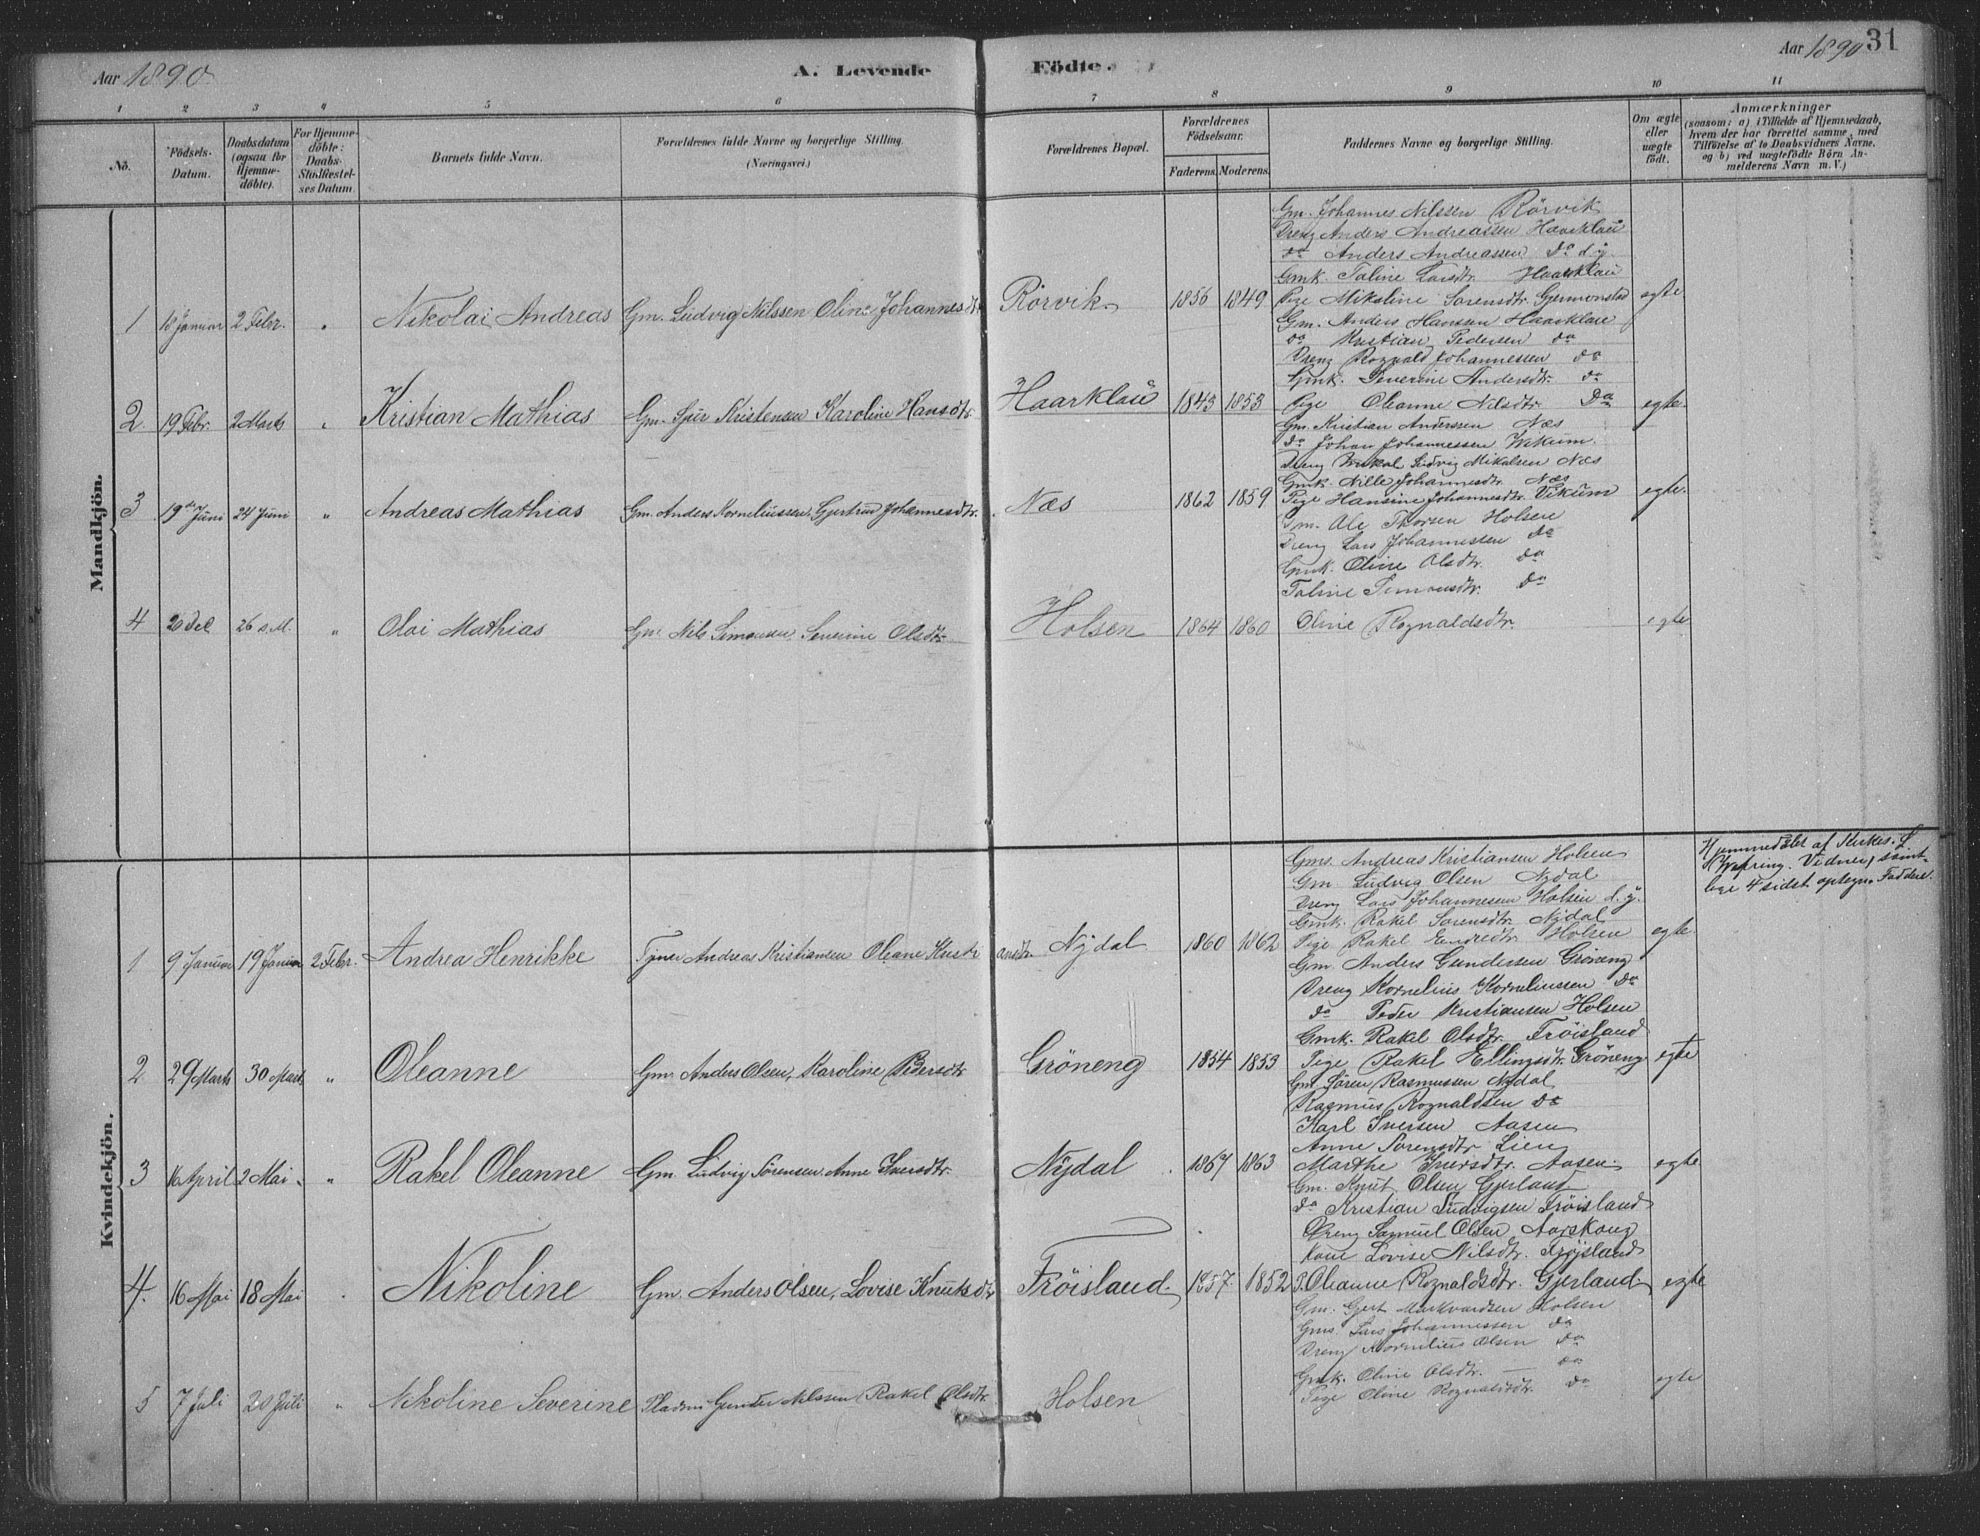 Aar 1890
A. Levende Födte.
Aar 1890
31
1 2 3 4 5 6 7 8 9 10 11
No.
Födsels-Datum.
Daabsdatum (ogsaa for Hjemme-døbte).
For Hjemme-döbte: Daabs-Stadfæstel-ses Datum.
Barnets fulde Navn.
Forældrenes fulde Navne og borgerlige Stilling. (Næringsvei.)
Forældrenes Bopæl.
Forældrenes Födselsaar.
Faderens. Moderens.
Faddernes Navne og borgerlige Stilling.
Om ægte eller uægte født.
Anmærkninger
(saasom: a) i Tilfælde af Hjemmedaab, hvem der har forrettet samme, med Tilföielse af to Daabsvidners Navne, og b) ved uægtefödte Börn Anmelderens Navn m. V.)
Mandkjön.
Gm. Johannes Nilssen Rörvik
Dreng Anders Andreassen Haarklau
do Anders Andreassen do d.y.
Gmk. Taline Larsdtr. Haarklau
1 18 Januar 2 Febr. " Nikolai Andreas Gm. Ludvig Nilssen Oline Johannesdtr Rörvik 1856 1849 Pige Mikaline Sorensdtr. Germonstad egte
Gm. Anders Hansen Haarklau
do Kristian Pedersen do
Dreng Rognald Johannessen do
Gmk. Severine Andersdtr. do
2 19 Febr. 2 Marts " Kristian Mathias Gm. Sjur Kristensen Karoline Hansdtr. Haarklau 1843 1853 Pige Oleanne Nilsdtr. Do egte.
Gm. Kristian Anderssen Næs
do Johan Johannessen Vikum
Dreng Ludvig Mikalsen Næs
Gmk. Nille Johannesdtr. Næs
3 19de Juni 24 Juni " Andreas Mathias Gm. Anders Korneliussen, Gjertrud Johannesdtr. Næs 1862 1859 Pige Hansine Johannesdtr. Vikum egte.
Gm. Ole Thorsen Holsen
Dreng Lars Johannessen do
Gmk. Oline Olsdtr. do
Taline Simonsdtr. do
4 20 26 s.M. " Olai Mathias Gm. Nils Simonsen Severine Olsdtr. Holsen 1864 1860 Oline Rognaldsdtr. egte
Kvindekjön.
Gms. Andreas Kristiansen Holsen
Gm Ludvig Olsen Nydal
Dreng Lars Johannesen Holsen d. y.
Gmk. Rakel Sorensdtr. Nydal
1 9 Januar 19 Januar 2 Febr. Andrea Henrikke Andreas Kristiansen Oleane Kristiansdtr. Nydal 1860 1862 Pige Rakel Endredtr. Holsen egte
Hjemmedöbt af Kirkes.
Vidner, samt-
lige 4 sidst. optegn. Faddere.
Gm. Anders Gundersen Gröneng
Dreng Kornelius Korneliussen do
do Peder Kristiansen Holsen
Gmk. Rakel Olsdtr. Fröisland
2 29 Marts 30 Marts " Oleanne Gm. Anders Olsen, Karoline Pedersdtr Gröneng 1854 1853 Pige Rakel Ellingsdtr. Gröneng egte
Gm. Sören Rasmussen Nydal
Rasmus Rognaldsen do
Karl Iversen Aasen
Anne Sorensdtr. Lien
3 16 April 2 Mai " Rakel Oleanne Gm. Ludvig Sørensen Anne Iversdtr. Nydal 1867 1863 Marthe Iversdtr. Aasen egte
Gm. Knut Olsen Gjerland
do Kristian Ludvigsen Fröisland
Dreng Samuel Olsen Aarskoug
Kone Lovise Nilsdtr. Fröjsland
4. 16 Mai 18 Mai Nikoline Gm. Anders Olsen, Lovise Knutsdtr Fröisland 1857 1852 P. Oleanne Rognaldsdtr. Gjerland egte
Gm. Gjert Markvardsen Holsen
Gms Lars Johannessen do
Dreng Kornelius Olsen do
Gmk. Oline Olsdtr. do
5 7 Juli 20 Juli " Nikoline Severine Pladsm Gunder Nilssen Rakel Olsdtr. Holsen Pige Oline Rognaldsdtr. do egte